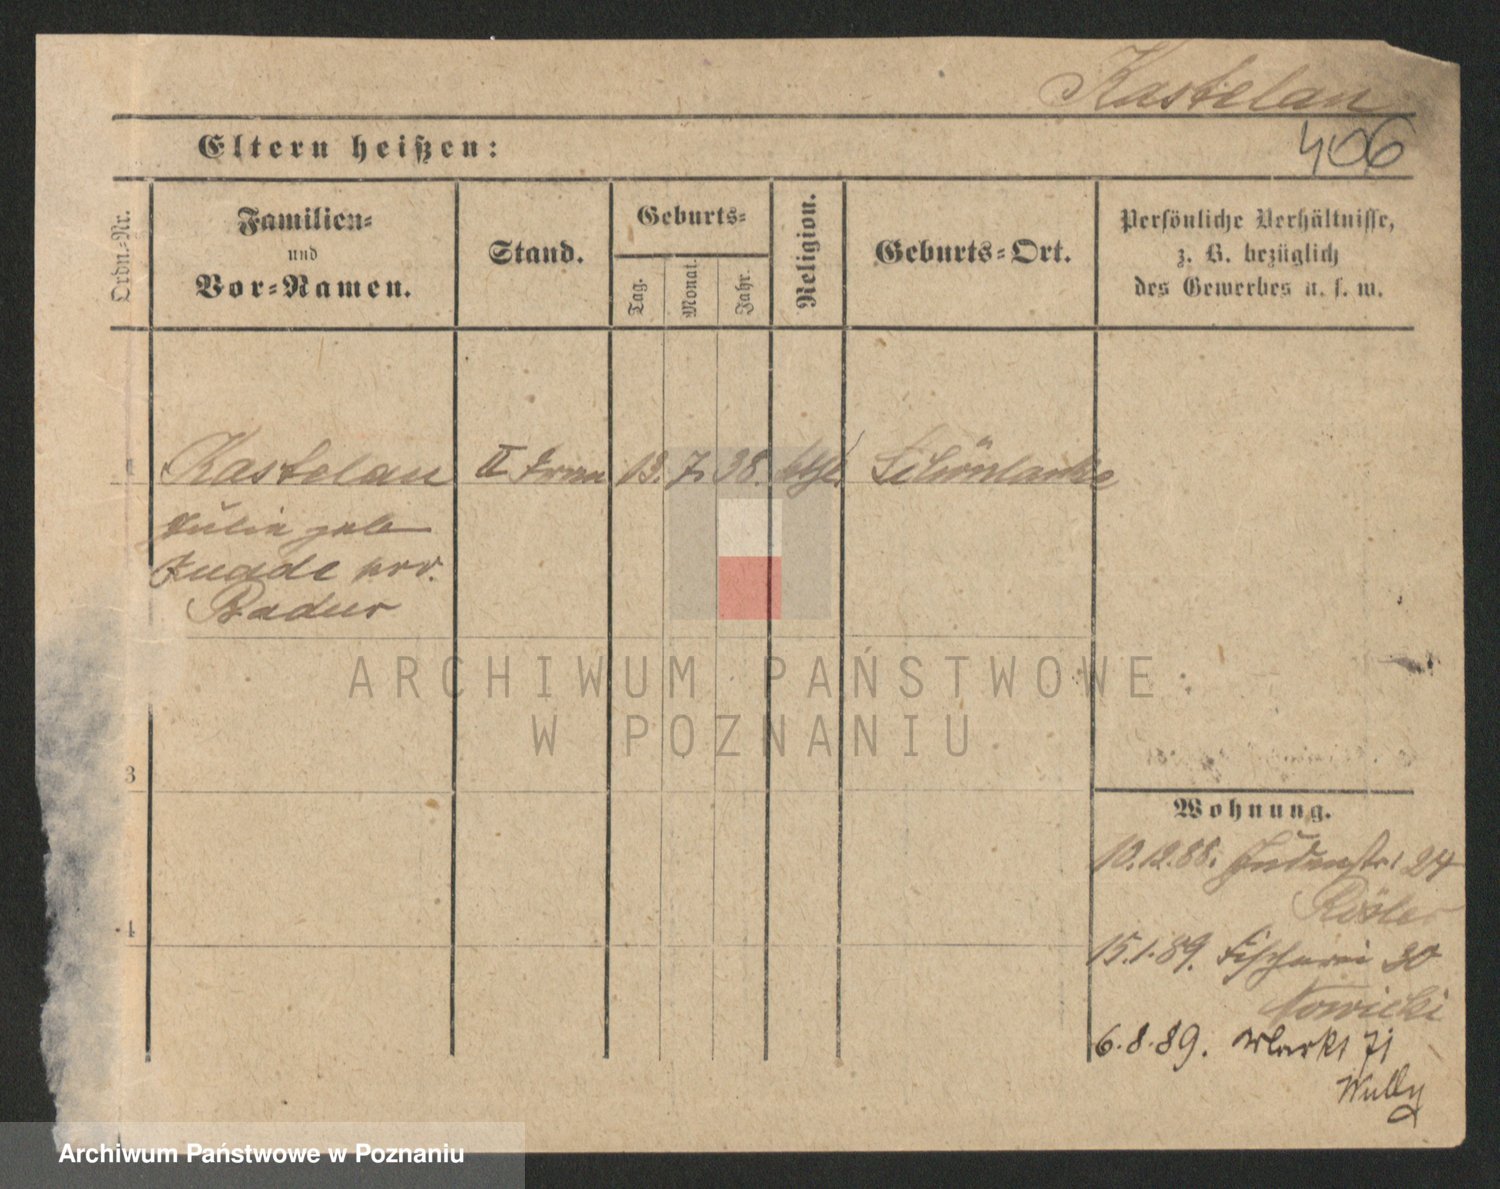 Kastelan
406
Eltern heißen:
Ordn.-Nr.
Familien-
und
Vor-Namen.
Stand.
Geburts-
Tag.
Monat.
Jahr.
Religion.
Geburts-Ort.
Persönliche Verhältnisse,
z. B. bezüglich
des Gewerbes u. s. w.
1 Kastelan II 13. 7. 38. kthl. Schönlanke
Julie geb
Quade vrw.
Badur
ARCHIWUM PAŃSTWOWE
W POZNANIU
3
Wohnung.
10.12.88. Judenstr. 24
Rösler
4
15.1.89. Fischerei 30
Nowicki
6.8.89. Markt 71
Archiwum Państwowe w Poznaniu